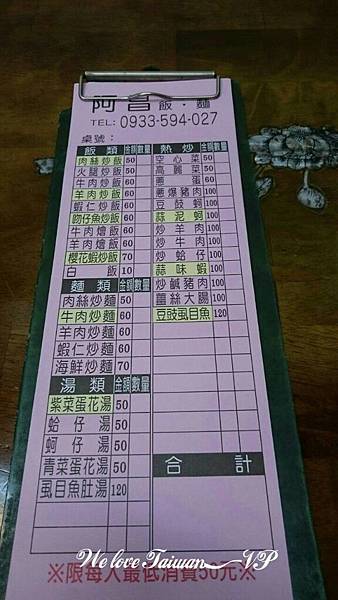 阿昌飯·麵
TEL: 0933-594-027
桌號：
飯類 金額 數量
肉絲炒飯 50
火腿炒飯 50
牛肉炒飯 60
羊肉炒飯 60
蝦仁炒飯 60
吻仔魚炒飯 60
牛肉燴飯 60
羊肉燴飯 60
櫻花蝦炒飯 70
白飯 10
麵類 金額 數量
肉絲炒麵 50
牛肉炒麵 60
羊肉炒麵 60
蝦仁炒麵 60
海鮮炒麵 70
湯類 金額 數量
紫菜蛋花湯 50
蛤仔湯 50
蚵仔湯 50
青菜蛋花湯 50
虱目魚肚湯 120
熱炒 金額 數量
空心菜 50
高麗菜 50
蔥蛋 50
蔥爆豬肉 100
豆鼓蚵 100
蒜泥蚵 100
炒羊肉 100
炒牛肉 100
炒蛤仔 100
蒜味蝦 100
炒鹹豬肉 100
薑絲大腸 100
豆豉虱目魚 120
合計
※限每人最低消費50元※
We love Taiwan VP